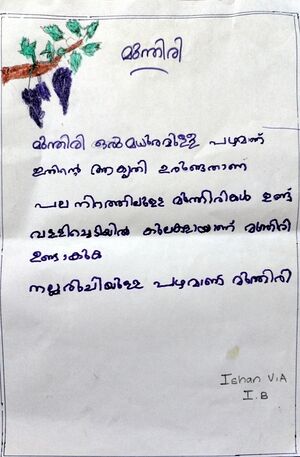 മുന്തിരി
മുന്തിരി ഒരു മധുരമുള്ള പഴമാണ്
ഇതിന്റെ ആകൃതി ഉരുണ്ടതാണ്
പല നിറത്തിലുള്ള മുന്തിരികൾ ഉണ്ട്
വള്ളിച്ചെടിയിൽ കുലകളായാണ് മുന്തിരി
ഉണ്ടാകുക
നല്ല രുചിയുള്ള പഴമാണ് മുന്തിരി
Ishan V.A
I.B